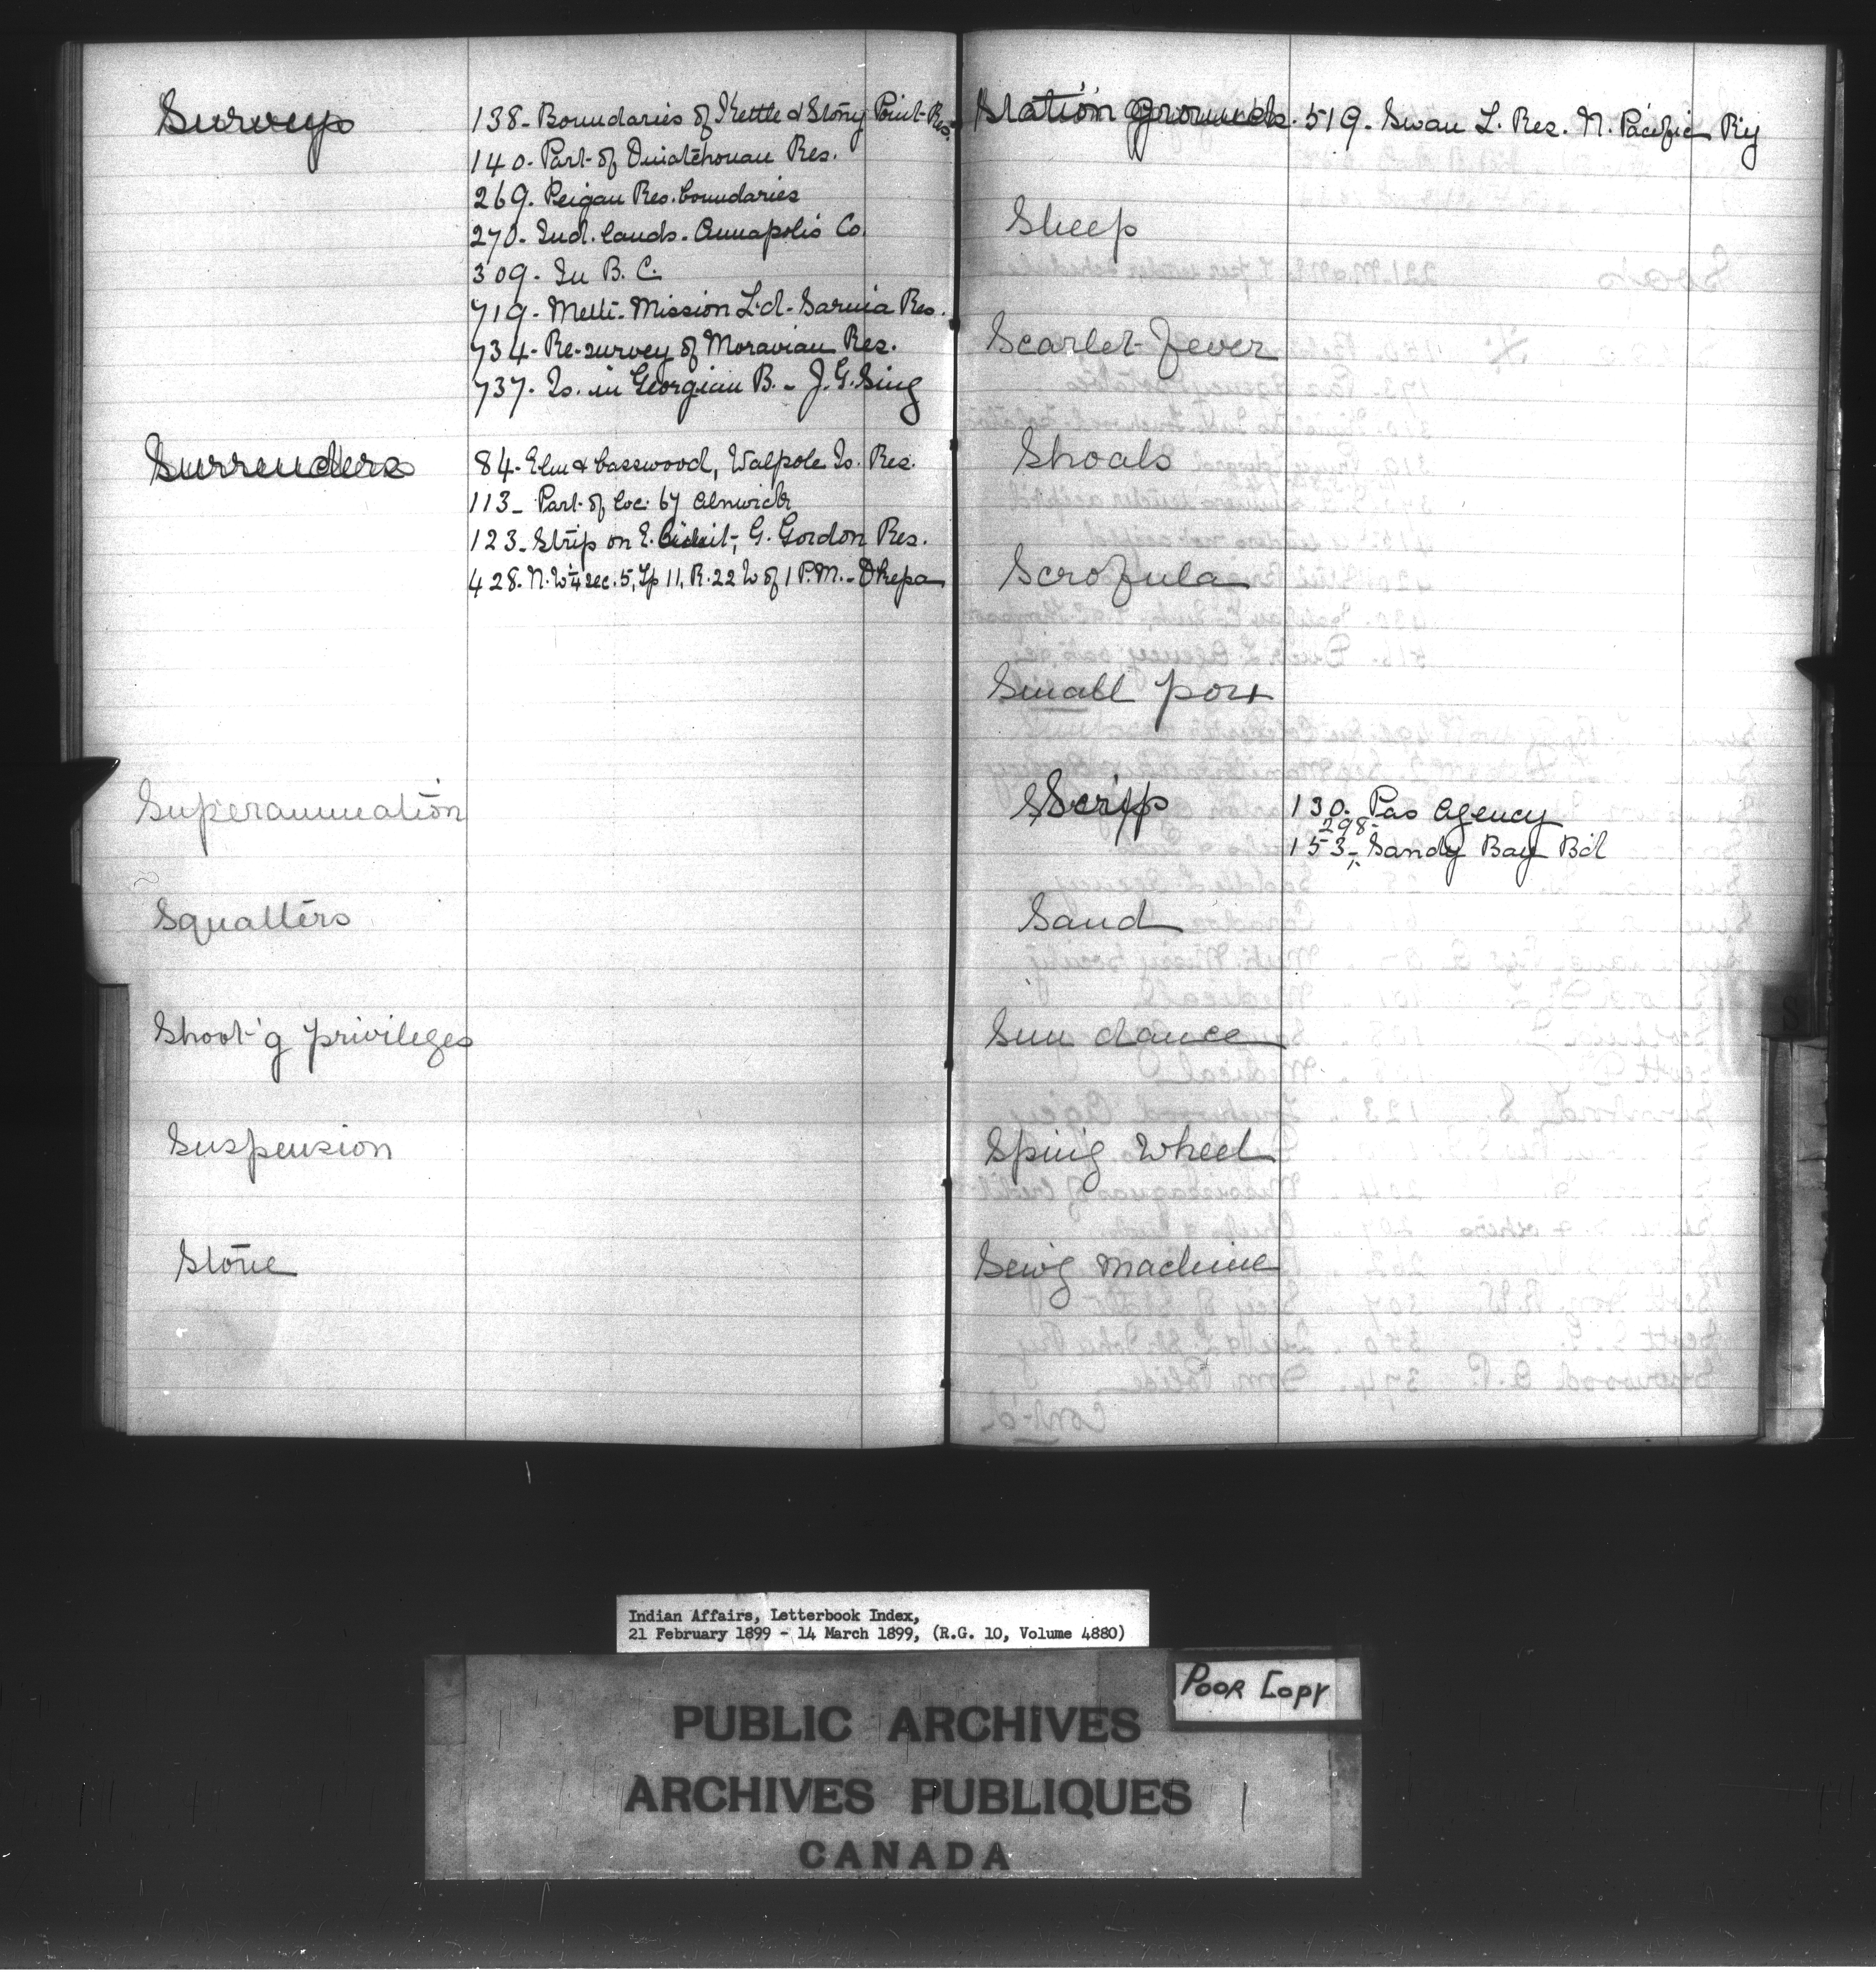 Surveys
138- Boundaries of Kettle & Stony Point Res.
140- Part of Ouiatchouan Res.
269. Peigan Res. boundaries
270- Ind. lands- Annapolis Co.
309- In B. C.
719- Meth- Mission L'd- Sarnia Res.
734- Re-survey of Moravian Res.
737- Is. in Georgian B. - J. G. Sing
Surrenders
84- Elm & basswood, Walpole Is. Res.
113- Part of loc. 67 Alnwick
123- Strip on E. limit, G. Gordon Res.
428- N. W ¼ sec. 5, Tp 11, R. 22 W of 1 P.M.-
Superannuation
Squatters
Shoot'g privileges
Suspension
Stone
Station grounds. 519. Swan L. Res. N. Pacific Ry
Sheep
Scarlet Fever
Shoals
Scrofula
Small pox
Scrip
130. Pas Agency
298-
153- Sandy Bay B'd
Sand
Sun dance
Sping Wheel
Sew'g machine
S
Indian Affairs, Letterbook Index,
21 February 1899 - 14 March 1899, (R.G. 10, Volume 4880)
POOR COPY
PUBLIC ARCHIVES
ARCHIVES PUBLIQUES
CANADA